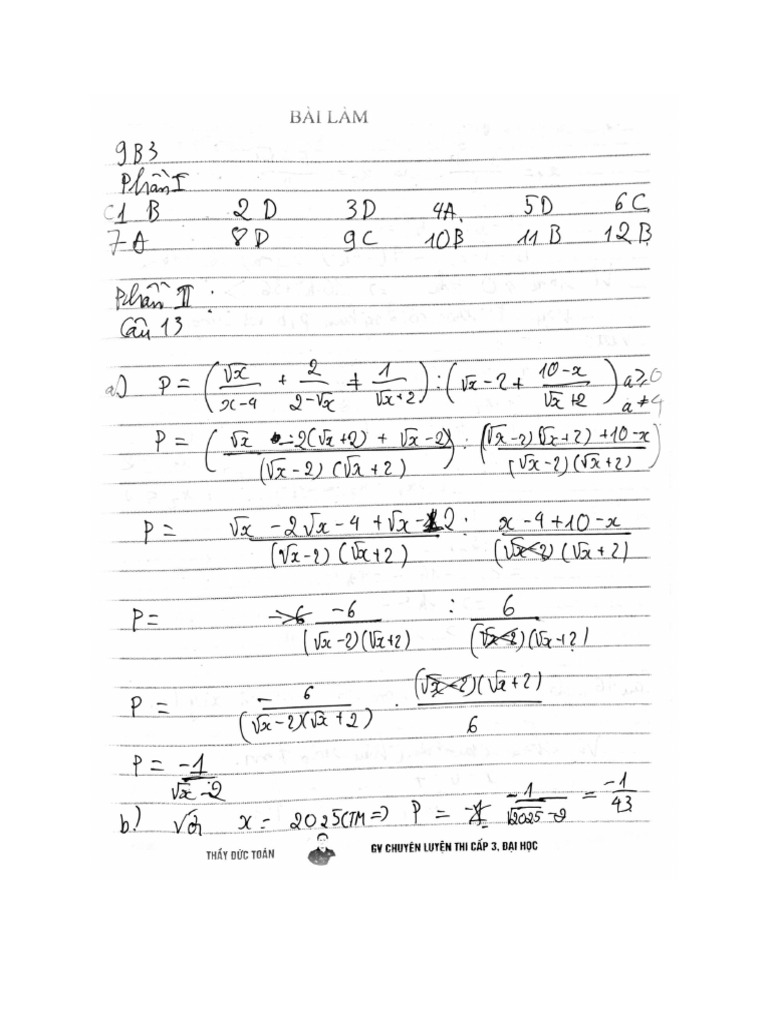 BÀI LÀM
9B3
Phần I
C1 B 2 D 3 D 4A. 5 D 6 C
7 A 8 D 9 C 10B 11 B 12 B
Phần II :
Câu 13
a.) P = (√x/(x-4) + 2/(2-√x) + 1/(√x+2)) : (√x - 2 + (10-x)/(√x+2)) a≥0
a≠4
P = (√x - 2(√x+2) + √x-2)/((√x-2)(√x+2)) : ((√x-2)(√x+2)+10-x)/((√x-2)(√x+2))
P = (√x - 2√x - 4 + √x - 2)/((√x-2)(√x+2)) : (x-4+10-x)/((√x-2)(√x+2))
P = -6/((√x-2)(√x+2)) : 6/((√x-2)(√x+2))
P = - 6/((√x-2)(√x+2)) . ((√x-2)(√x+2))/6
P = -1/(√x-2)
b.) Với x = 2025(TM) => P = -1/(√2025-2) = -1/43
THẦY ĐỨC TOÁN GV CHUYÊN LUYỆN THI CẤP 3, ĐẠI HỌC